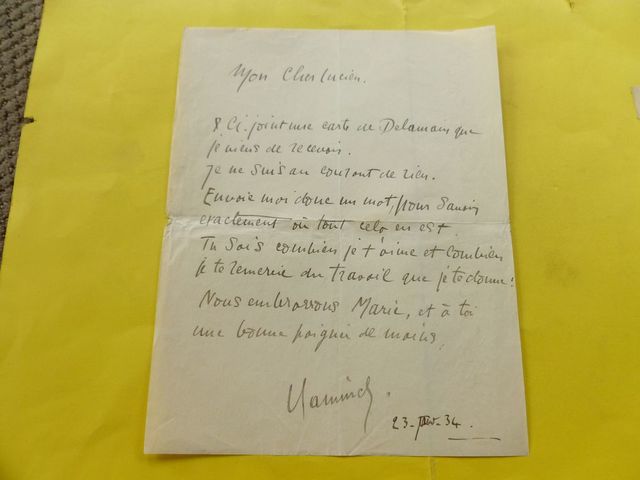 Mon Cher Lucien.
Ci-joint une carte de Delamain que
je viens de recevoir.
Je ne suis au courant de rien.
Envoie moi donc un mot, pour savoir
exactement où tout cela en est.
Tu sais combien je t'aime et combien
je te remercie du travail que je te donne!
Nous embrassons Marie, et à toi
une bonne poignée de mains,
Vlaminck.
23- -34.